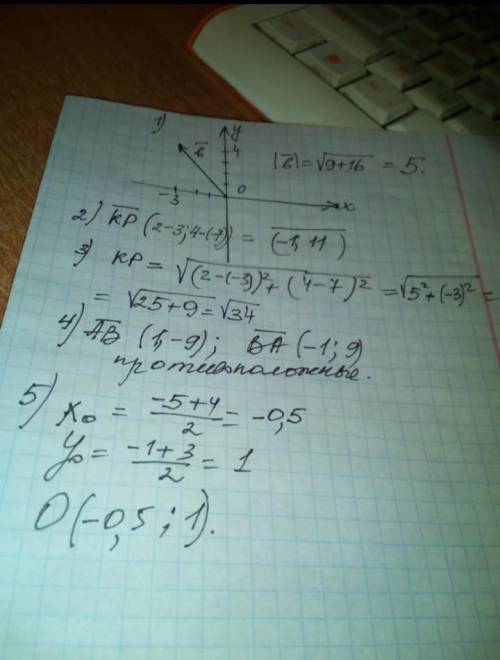 1)
y
4
b
-3
0
x
|b̅| = √9+16 = 5.
2) K̅P̅ (2-3; 4-(-7)) = (-1, 11)
3) KP = √(2-(-3))² + (4-7)² = √5²+(-3)² =
= √25+9 = √34
4) A̅B̅ (1,-9); B̅A̅ (-1; 9)
противоположные.
5) x₀ = -5+4/2 = -0,5
y₀ = -1+3/2 = 1
O(-0,5; 1).